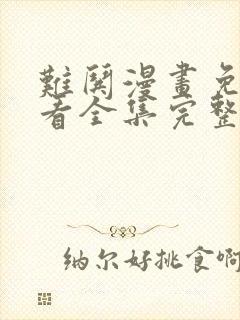 難鬨漫畫免
看全集完整
纳尔好挑食啊